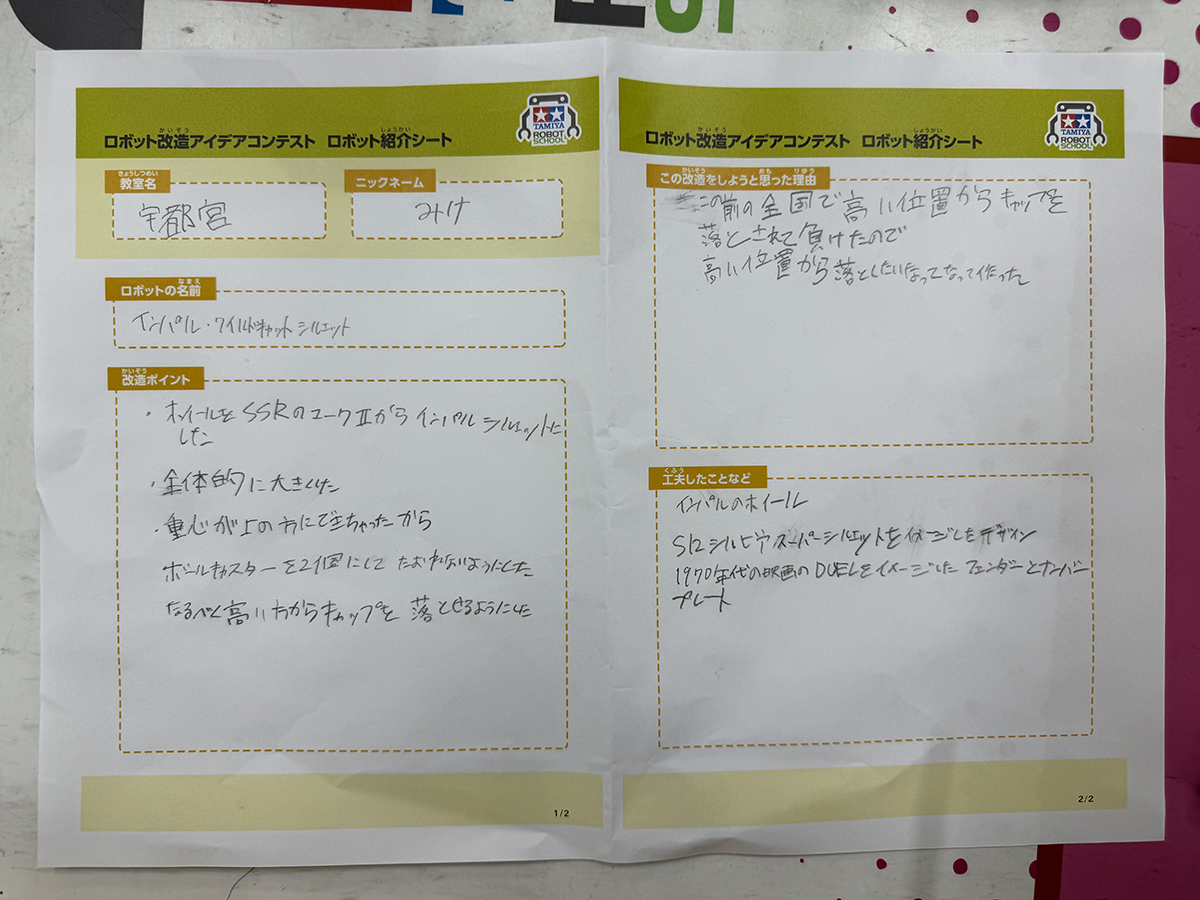 ロボット改造アイデアコンテスト ロボット紹介シート
TAMIYA
ROBOT
SCHOOL
教室名
宇都宮
ニックネーム
みけ
ロボットの名前
インパル・ワイルドキャットシルエット
改造ポイント
・ホイールをSSRのマークⅡからインパルシルエットに
した
・全体的に大きくした
・重心が上の方にできちゃったから
ボールキャスターを2個にしてたおれないようにした
なるべく高い方からキャップを落とせるようにした
1/2
ロボット改造アイデアコンテスト ロボット紹介シート
TAMIYA
ROBOT
SCHOOL
この改造をしようと思った理由
この前の全国で高い位置からキャップを
落とされて負けたので
高い位置から落としたいなってなって作った
工夫したことなど
インパルのホイール
S12シルビアスーパーシルエットをイメージしたデザイン
1970年代の映画のDUELをイメージしたフェンダーとナンバー
プレート
2/2